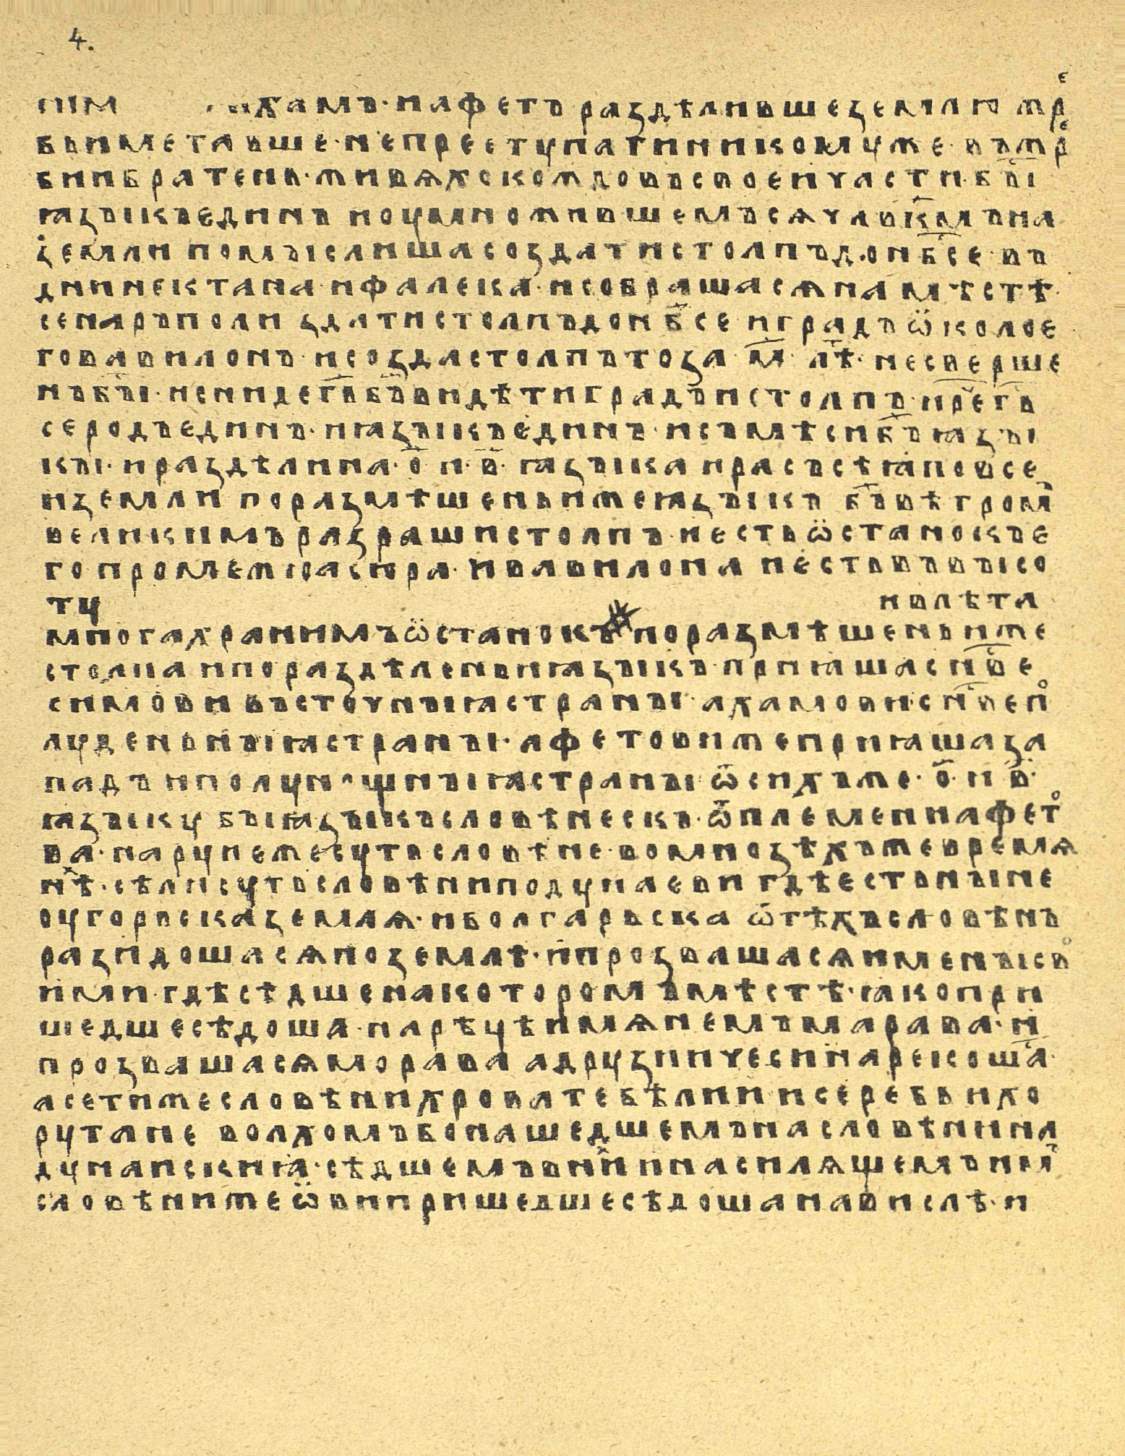 4.
сим хамъ · и афетъ раздѣливше землю жре
бьи метавше · не преступати никомуже · въ жре
бии братень · живяхо кождо въ своеи части · бы
ꙗзыкъ единъ и оумножившемъся члвкмъ на
земли помыслиша создати столпъ до нбсе · въ
дни нектана · и фалека · и собрашася на мѣстѣ ·
сенаръ поли здати столпъ до нбсе и градъ ѿколо е
го вавилонъ · и создаста столпъ тъ за м · лѣ · не сверше
нъ бы · и сниде гь бъ видѣти градъ и столпъ · и реч гь
се родъ единъ · и ꙗзыкъ единъ · и съмѣси бъ ꙗзы
кы · и раздѣли на · о · и · в · ꙗзыка и расъсѣꙗ по все
и земли по размѣшеньи же ꙗзыкъ бъ вѣтром
великимъ разраши столпъ · и есть ѿстанокъ е
го промеж асюра · и вавилона и есть въ высо
ту и в лѣта
многа хранимъ ѿстанокъ по размѣшеньи же
столпа и по раздѣленьи ꙗзыкъ · приꙗша снве
симови въсточныꙗ страны · а хамови · снве по
луденьныꙗ страны · афетови же приꙗша за
падъ и полунощныꙗ страны ѿ сихъ же · о · и в ·
ꙗзыку бы ꙗзыкъ словѣнескъ · ѿ племени афето
ва · нарицѣмѣе суть словѣне · во мнозѣхъ же времѧ
нѣ · сѣли суть словѣни по дунаеви гдѣ есть ныне
оугорьска земля · и болгарьска ѿ тѣхъ словѣнъ
разидошася по земле · и прозвашася имены сво
ими · гдѣ сѣдше на котором мѣстѣ · ꙗко при
шедше сѣдоша · на рѣцѣ имянемъ марава · и
прозвашася морава а друзии чеси нарекоша ·
а се ти же словѣни хровате бѣлии и серебь и хо
рутане волхомъ бо нашедшемъ на словѣни на
дунаискиꙗ · сѣдшемъ в них и насилящемъ им
словѣни же ѿви пришедше сѣдоша на вислѣ · и